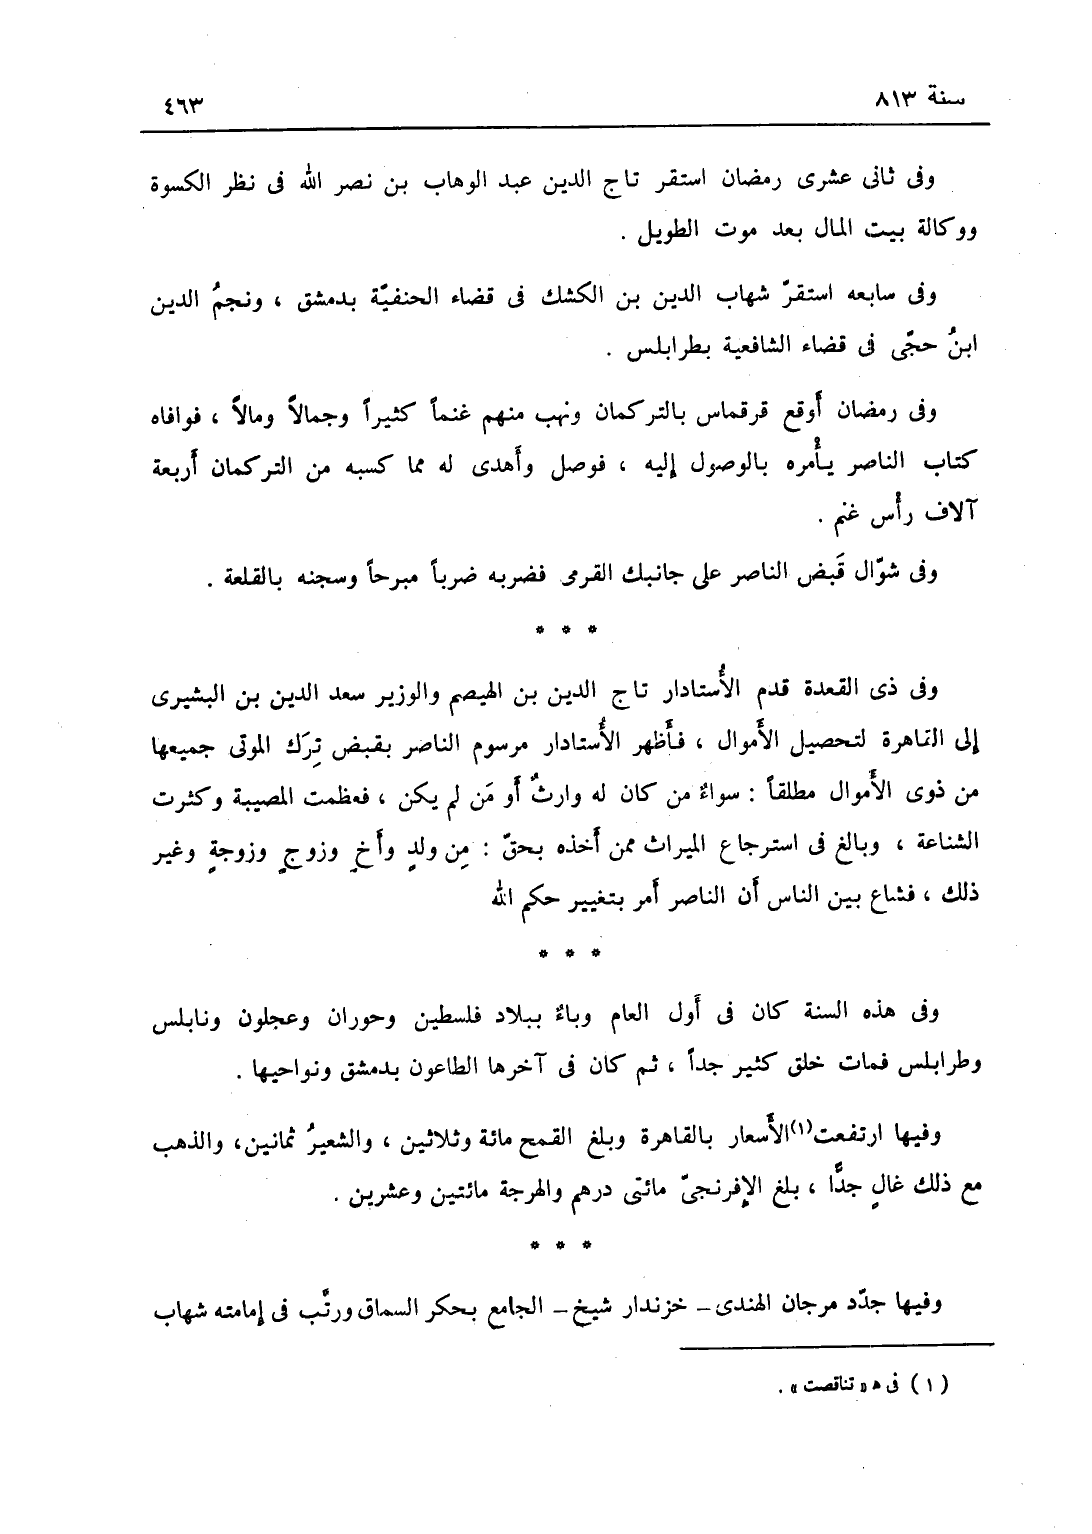 سنة ٨١٣ ٤٦٣
وفى ثانى عشرى رمضان استقر تاج الدين عبد الوهاب بن نصر الله فى نظر الكسوة
ووكالة بيت المال بعد موت الطويل .
وفى سابعه استقرّ شهاب الدين بن الكشك فى قضاء الحنفيّة بدمشق ، ونجمُ الدين
ابنُ حجّى فى قضاء الشافعية بطرابلس .
وفى رمضان أَوقع قرقماس بالتركمان ونهب منهم غنماً كثيراً وجمالاً ومالاً ، فوافاه
كتاب الناصر يأْمره بالوصول إليه ، فوصل وأَهدى له مما كسبه من التركمان أَربعة
آلاف رأْس غنم .
وفى شوّال قَبض الناصر على جانبك القرمى فضربه ضرباً مبرحاً وسجنه بالقلعة .
* * *
وفى ذى القعدة قدم الأُستادار تاج الدين بن الهيصم والوزير سعد الدين بن البشيرى
إلى القاهرة لتحصيل الأَموال ، فأَظهر الأُستادار مرسوم الناصر بقبض تِرَك الموتى جميعها
من ذوى الأَموال مطلقاً : سواءٌ من كان له وارثٌ أَو مَن لم يكن ، فعظمت المصيبة وكثرت
الشناعة ، وبالغ فى استرجاع الميراث ممن أَخذه بحقّ : مِن ولدٍ وأَخٍ وزوجٍ وزوجةٍ وغير
ذلك ، فشاع بين الناس أَن الناصر أَمر بتغيير حكم الله
* * *
وفى هذه السنة كان فى أَول العام وباءٌ ببلاد فلسطين وحوران وعجلون ونابلس
وطرابلس فمات خلق كثير جداً ، ثم كان فى آخرها الطاعون بدمشق ونواحيها .
وفيها ارتفعت(١) الأَسعار بالقاهرة وبلغ القمح مائة وثلاثين ، والشعيرُ ثمانين، والذهب
مع ذلك غالٍ جدًّا ، بلغ الإفرنجىّ مائتى درهم والهرجة مائتين وعشرين .
* * *
وفيها جدّد مرجان الهندى – خزندار شيخ – الجامع بحكر السماق ورتَّب فى إمامته شهاب
(١) فى ﻫ « تناقصت » .